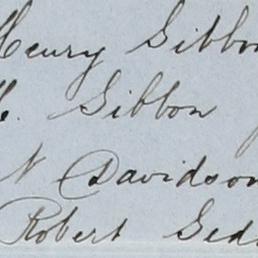 Henry Gibbon
Gibbon
N Davidson
Robert Ged